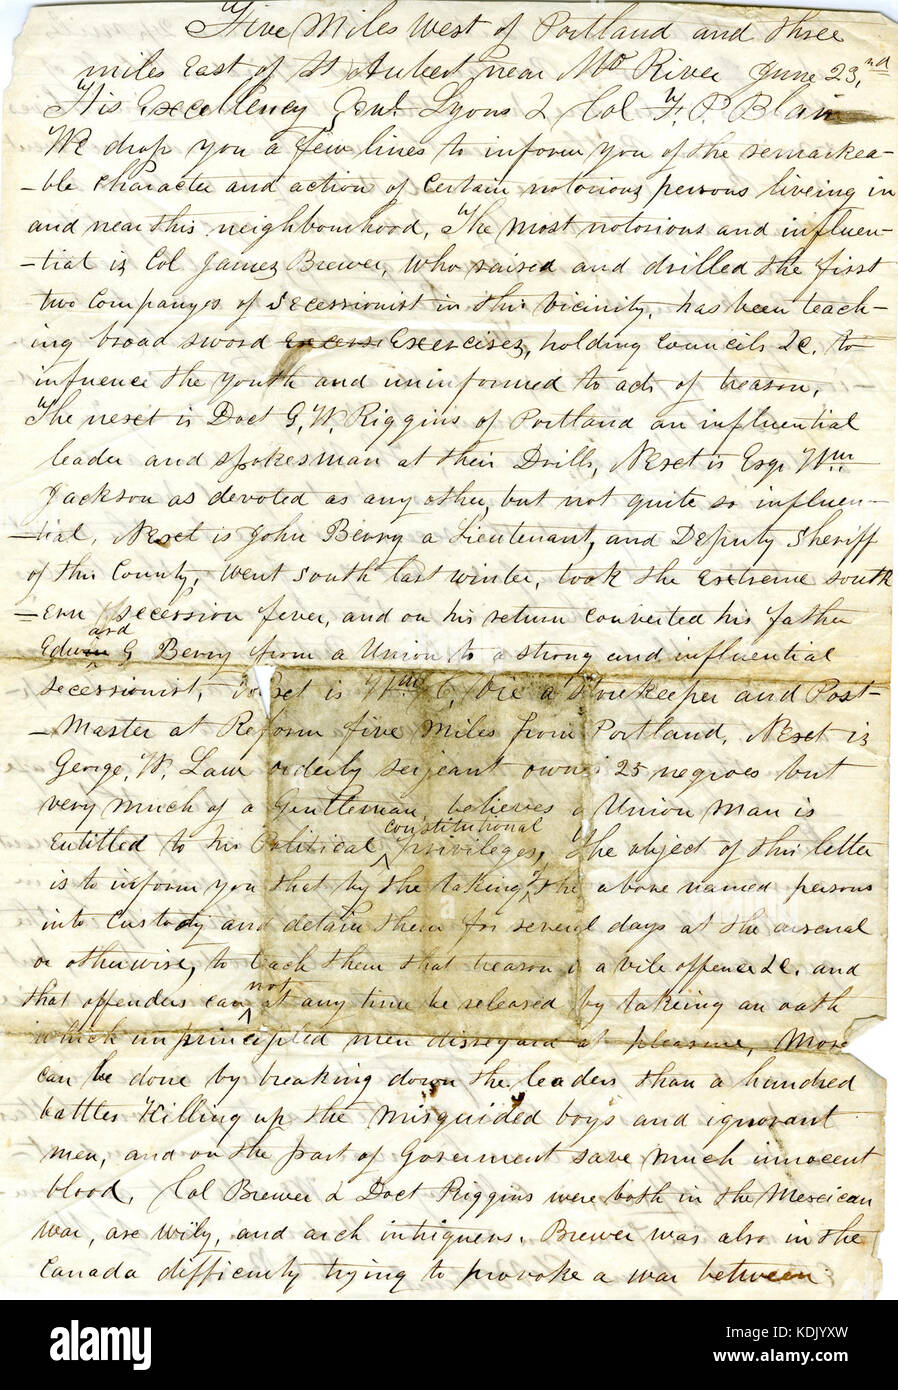 Five Miles West of Portland and three
miles East of St Aubert near Mo River June 23,nd
His Excellency Genl Lyons & Col F. P. Blair
We drop you a few lines to inform you of the remarkea-
-ble character and action of certain notorious persons liveing in
and near this neighbourhood, The most notorious and influen-
-tial is Col James Brewer, who raised and drilled the first
two companyes of Secessionist in this vicinity, has been teach-
ing broad sword Excerci Exercises, holding councils &c. to
infuence the youth and uninformed to acts of treason.
The next is Doct G. W. Riggins of Portland an influential
leader and spokesman at their Drills, Next is Esqr Wm
Jackson as devoted as any other, but not quite so influen-
-tial, Next is John Berry a Lieutenant, and Deputy Sheriff
of this County, went south last winter, took the extreme south
-ern secession fever, and on his return converted his father
Edwin ard G Berry from a Union to a strong and influential
secessionist, Next is Wm C, Vie a Storekeeper and Post-
-Master at Reform five miles from Portland, Next is
George, W. Law orderly serjeant owns 25 negroes but
very much of a Gentleman, believes a Union man is
entitled to his Political constitutional privileges, The object of this letter
is to inform you that by the taking of the above named persons
into custody and detain them for several days at the arsenal
or otherwise, to teach them that treason is a vile offence &c. and
that offenders can not at any time be released by takeing an oath
which unprincipled men disregard at pleasure, More
can be done by breaking down the leaders than a hundred
battles Killing up the misguided boys and ignorant
men, and on the part of Goverment save much innocent
blood. Col Brewer & Doct Riggins were both in the Mexican
war, are wily, and arch intriguers. Brewer was also in the
Canada difficulty trying to provoke a war between
alamy
a
Image ID: KDJYXW
www.alamy.com